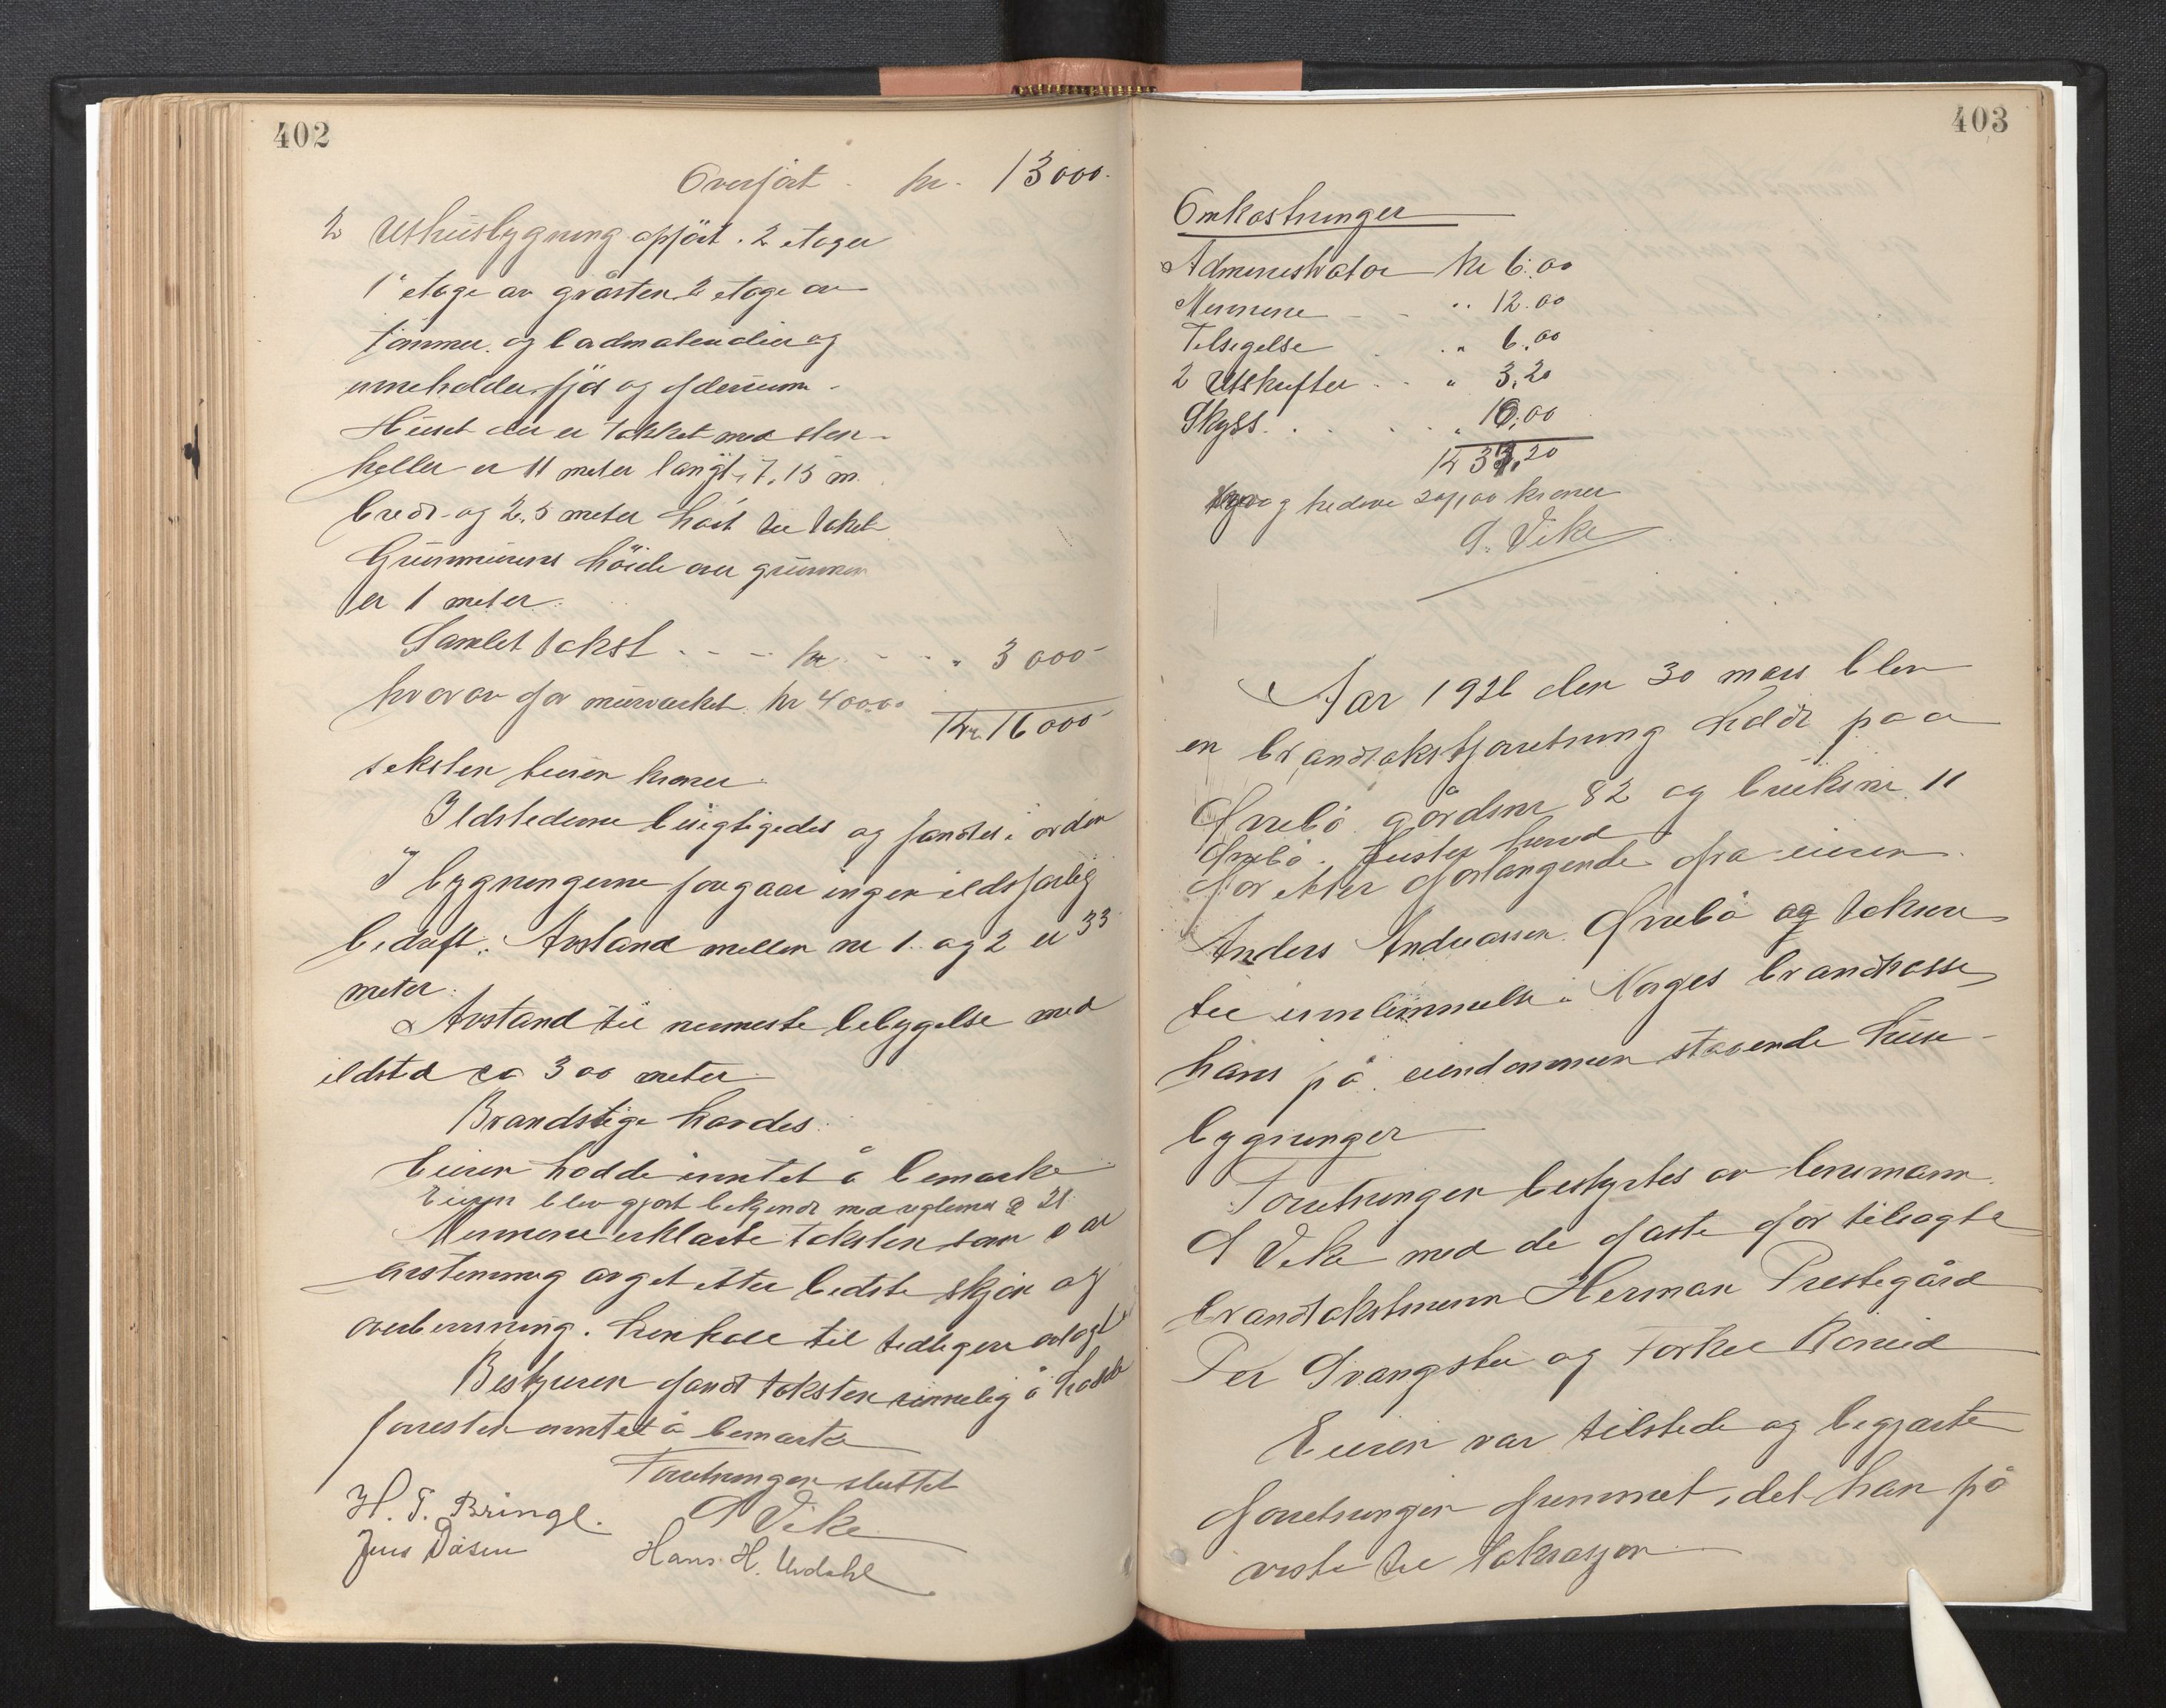 402
Overført . kr. 13000.
2 Uthusbygning opført i 2 etager
1 etage av gråsten 2 etage av
tømmer og bordmaterialier og
inneholder fjøs og forrum.
Huset der er tækket med sten-
heller er 11 meter langt, 7,15 m.
bredt og 2,5 meter høit til taket
Grunmurens høide over grunnen
er 1 meter.
Samlet takst - - - kr. - - " 3000-
hvorav for murverket kr 400.00
Kr. 16000-
seksten tusen kroner.
Ildstederne besigtigedes og fandtes i orden
I bygningerne foregaar ingen ildsfarlig
bedrift. Avstand mellem nr 1. og 2 er 33
meter.
Avstand til nærmeste bebygelse med
ildsted ca 300 meter.
Brandstige havdes.
Eieren hadde inntet å bemærke
Eieren blev gjort bekjendt med reglema § 21.
Mennene erklærte taksten som var
enstemmig avget etter bedste skjøn og
overbevisning. henhold til tidligere avlagt
Bestyreren fandt taksten rimelig å hadde
forresten inntet å bemærke
Forretningen sluttet
H. T. Bringe. S Vike
Jens Døsen Hans H. Urdahl
403
Omkostninger
Administrator kr 6.00
Mennene - - " 12.00
Tilsigelse . . " 6.00
2 Utskrifter . . " 3,20
Skyss . . . . " 10,00
Kr 37,20
og tredive 20/100 kroner
S. Vike
Aar 1926 den 30 mars blev
en brandtakstforretning holdt paa
Ørrebø gårdsnr 82 og bruksnr. 11
Ørrebø . Luster herred
for etter forlangende fra eieren
Anders Andreassen Ørrebø og taksere
til innlemmelse i Norges brandkasse
hans på eiendommen staaende huse-
bygninger
Forretningen bestyrtes av lensmann
S Vike med de faste for tilsagte
brandtakstmenn Herman Prestegård
Per Svangstu og Torkel Røneid
Eieren var tilstede og begjærte
forretningen fremmet, idet han på
viste til taksasjon